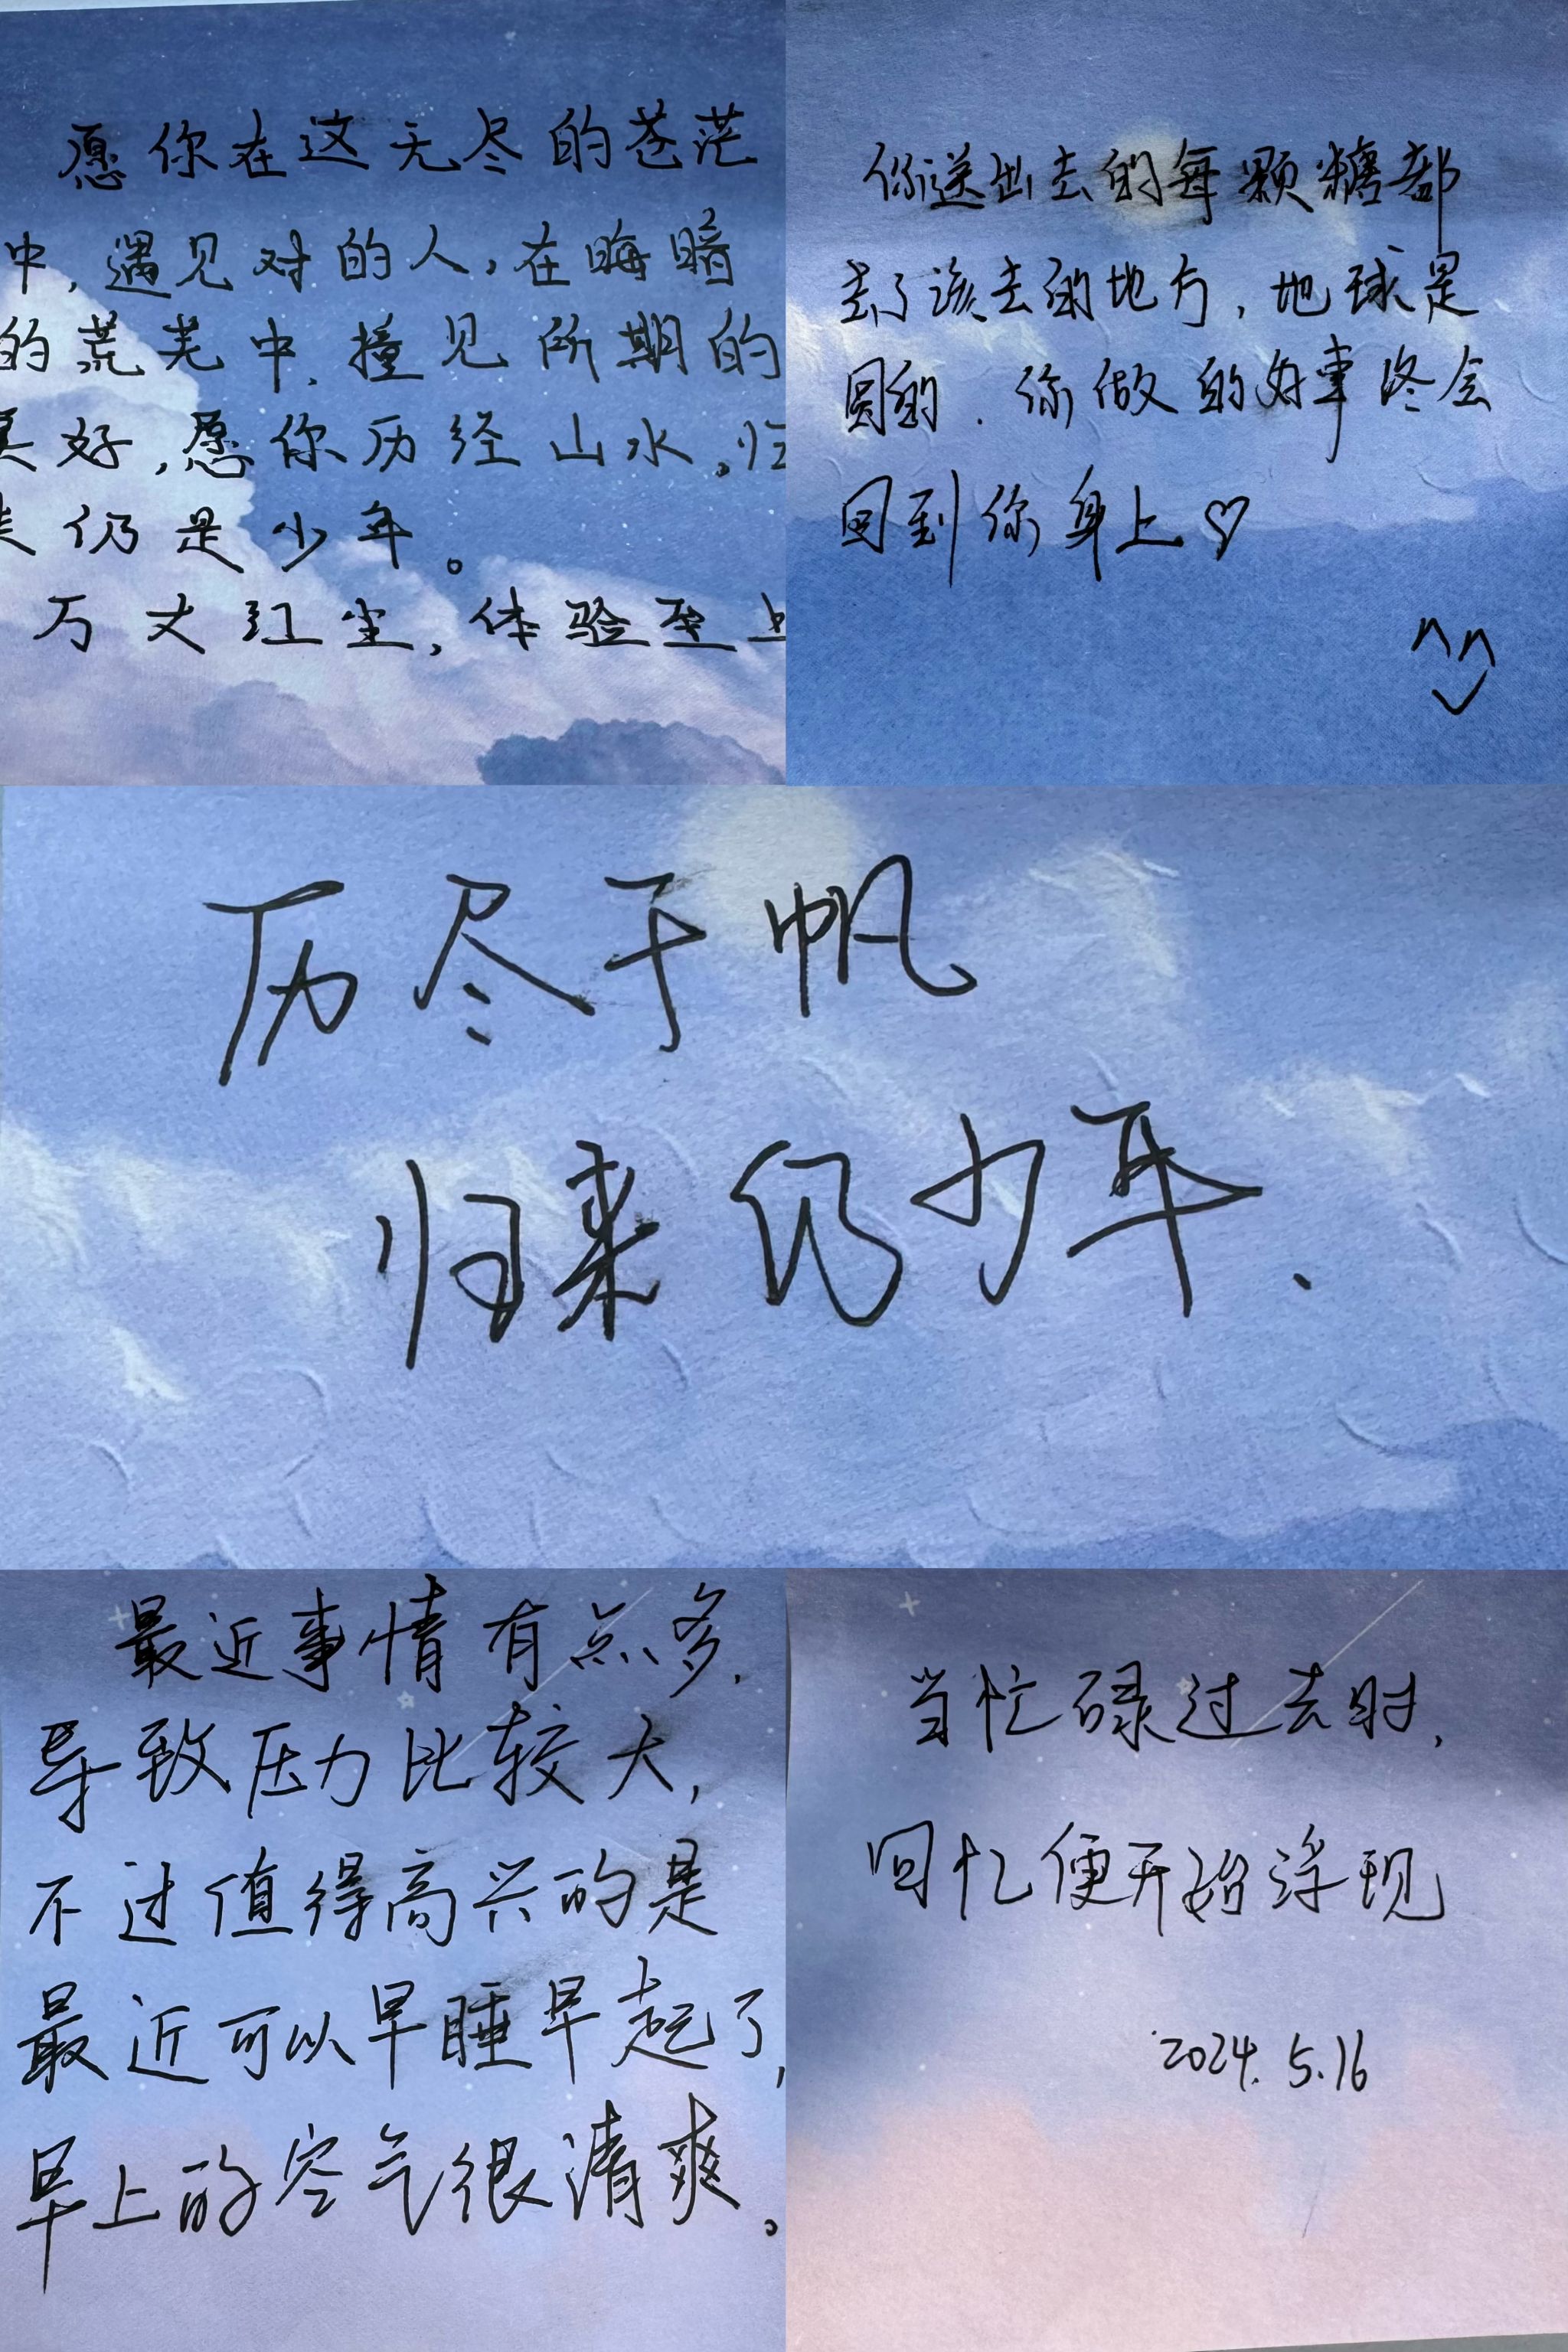 愿你在这无尽的苍茫
中,遇见对的人,在晦暗
的荒芜中,撞见所期的
美好,愿你历经山水,归
来仍是少年。
万丈红尘,体验至上
你送出去的每颗糖都
去了该去的地方,地球是
圆的.你做的好事终会
回到你身上♡
历尽千帆
归来仍少年.
最近事情有点多,
导致压力比较大,
不过值得高兴的是
最近可以早睡早起了,
早上的空气很清爽。
当忙碌过去时,
回忆便开始浮现
2024.5.16